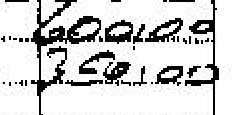 600,00
350,00